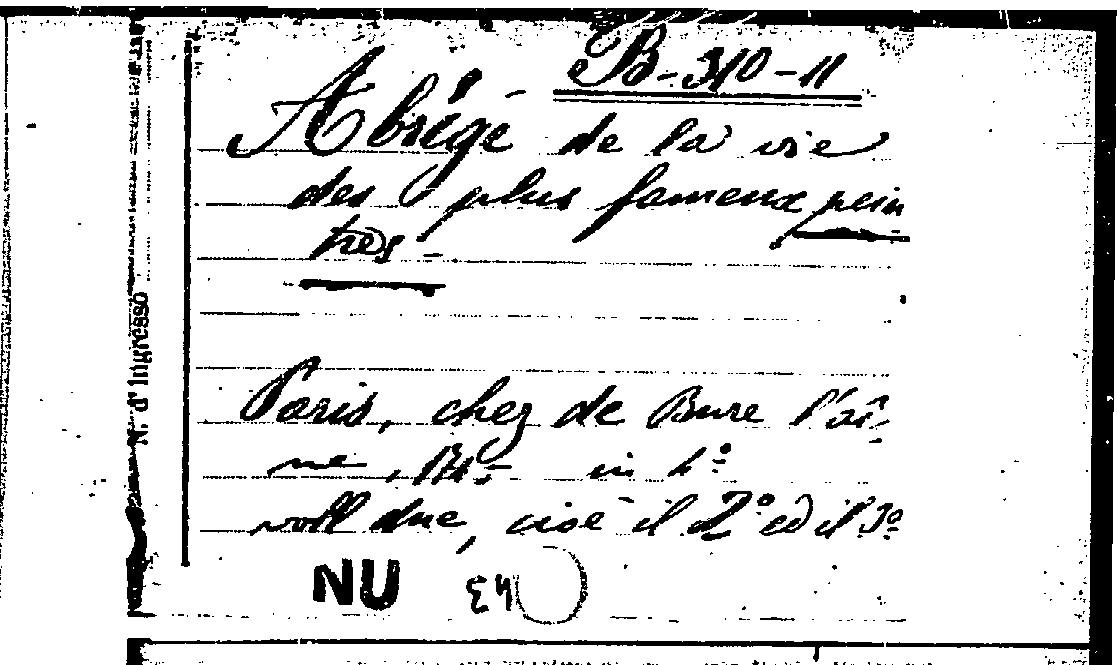 B-310-11
Abrégé de la vie
des plus fameux pein
tres-
Paris, chez de Bure l'aî-
né, in 4º
voll due, cioè il 2º ed il 3º
NU
N. d'Ingresso